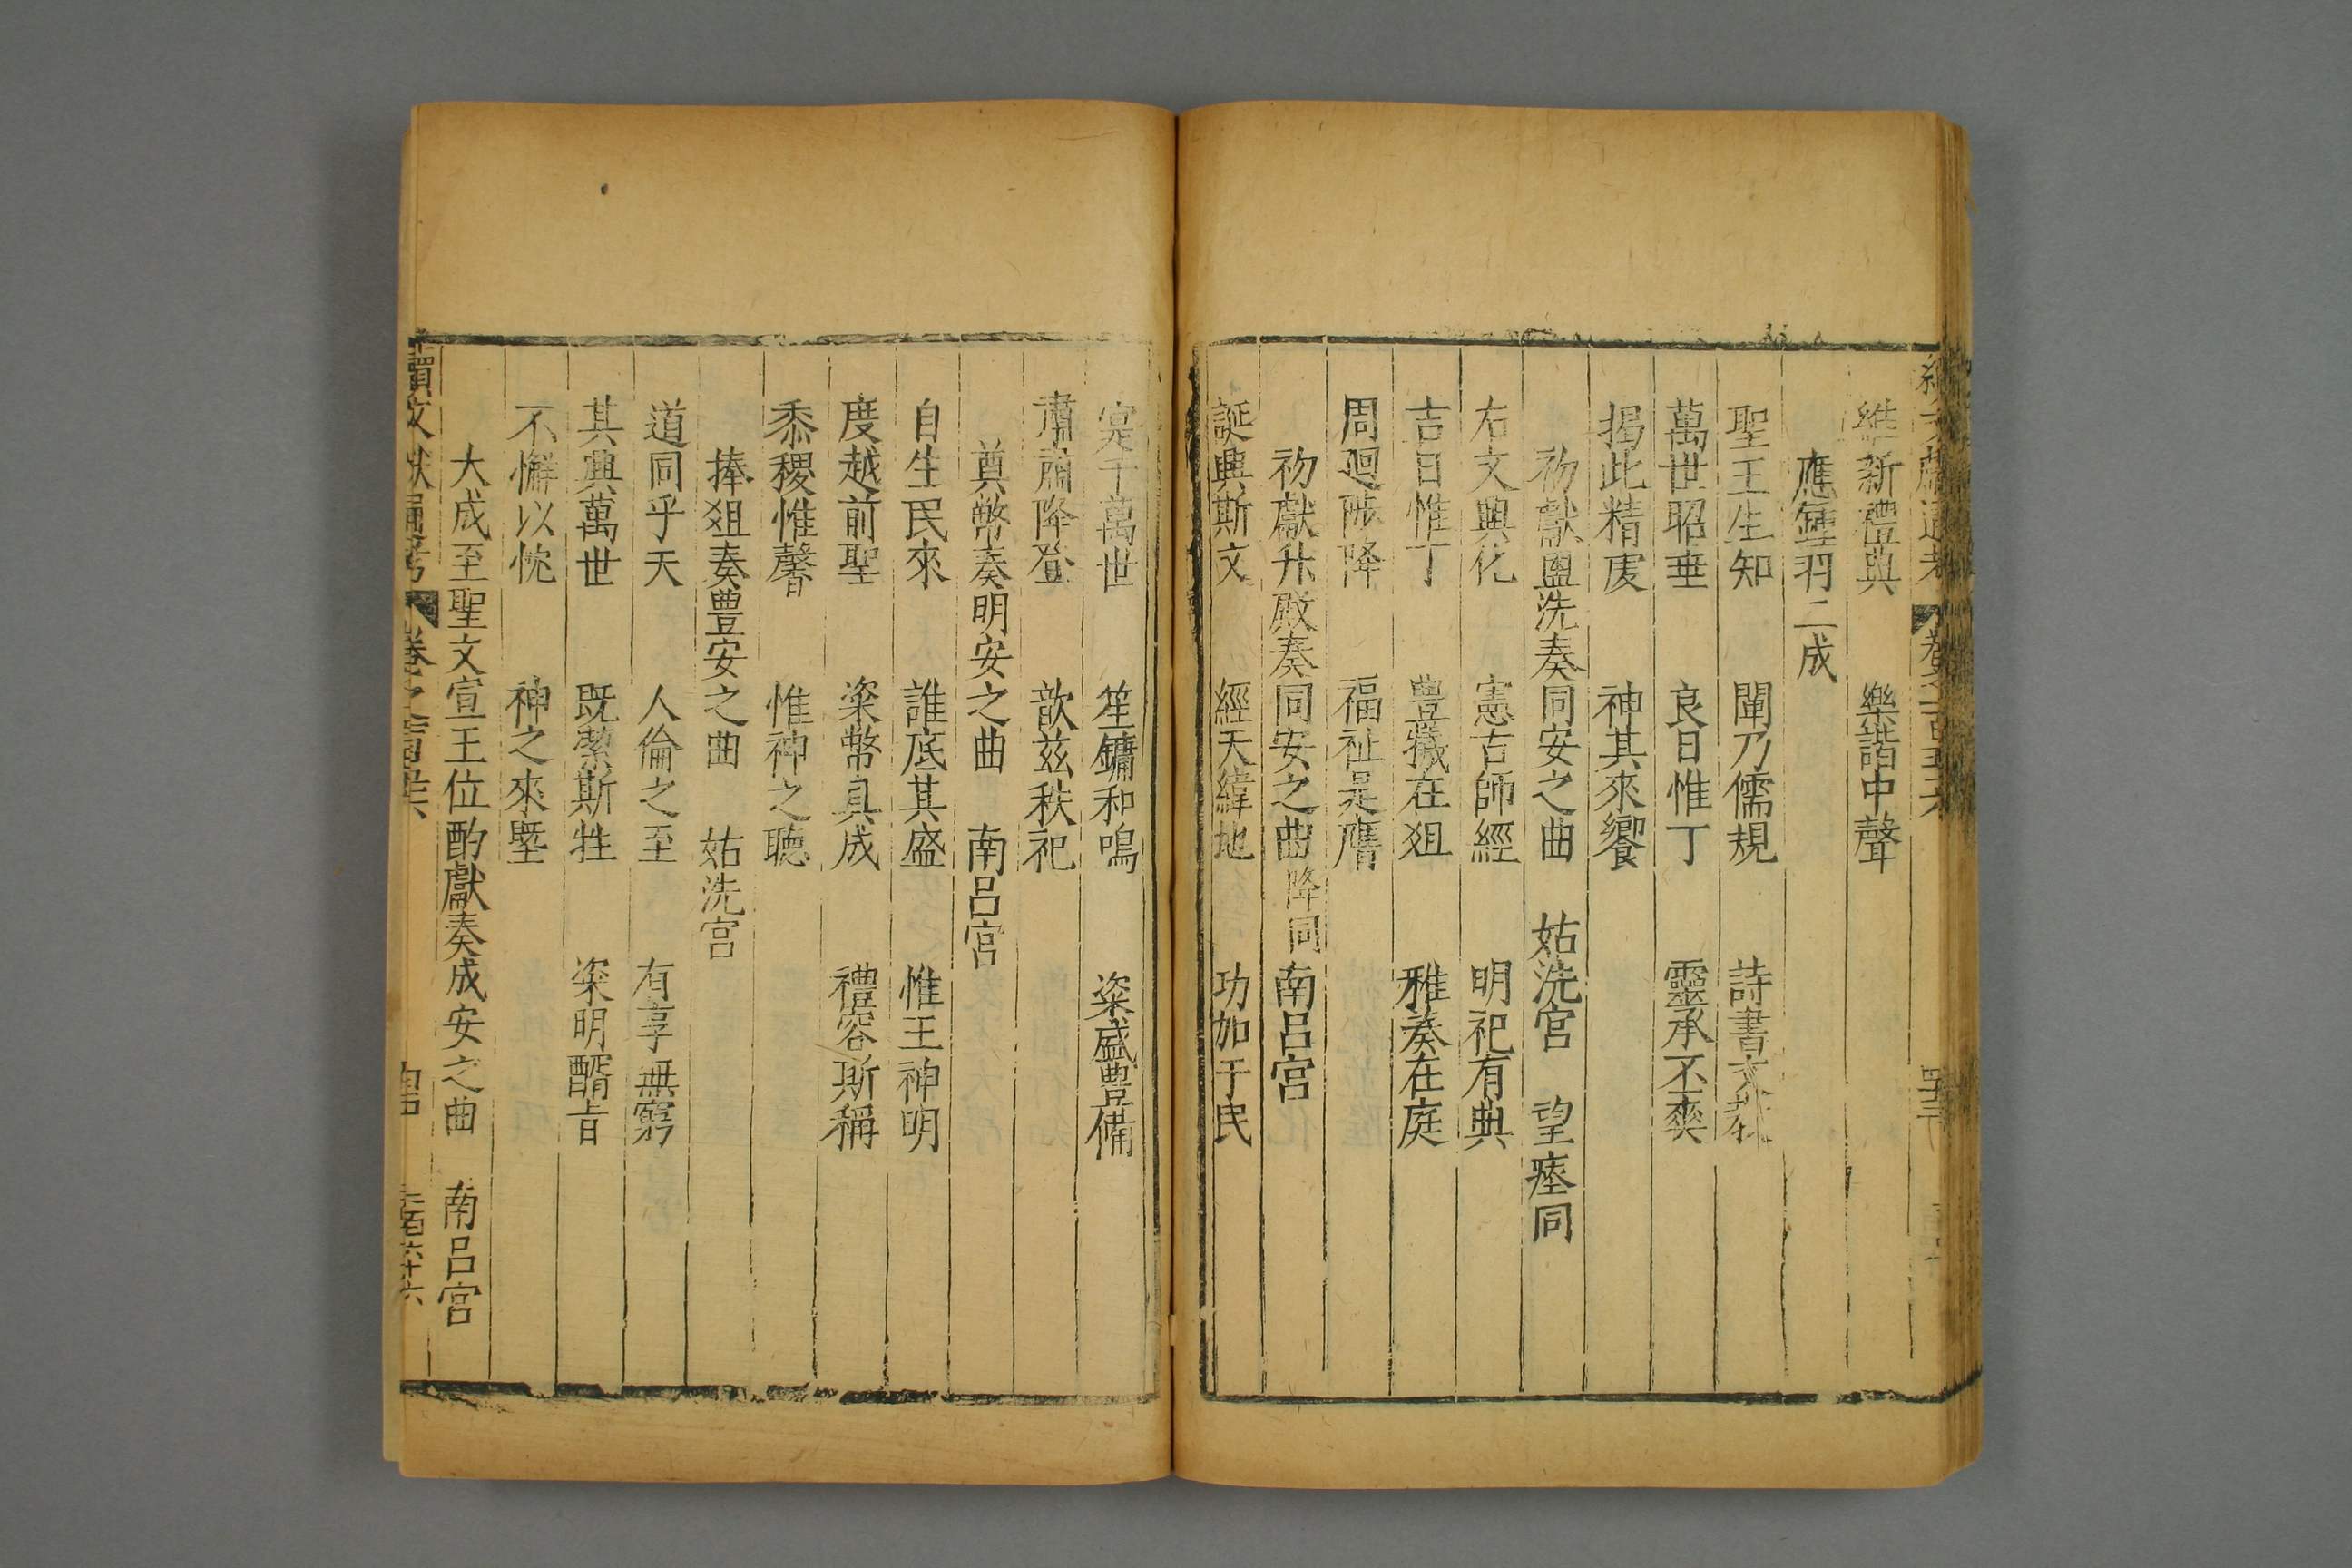 續文獻通考 卷之一百五十六
維新禮典 樂諧中聲
應鍾羽二成
聖王生知 闡乃儒規 詩書文教
萬世昭垂 良日惟丁 靈承不爽
揭此精虔 神其來饗
初獻盥洗奏同安之曲 姑洗宮 望瘞同
右文興化 憲古師經 明祀有典
吉日惟丁 豊犧在俎 雅奏在庭
周廻陟降 福祉是膺
初獻升殿奏同安之曲 降同 南呂宮
誕興斯文 經天緯地 功加于民
寔千萬世 笙鏞和鳴 粢盛豊備
肅肅降登 歆兹秩祀
奠幣奏明安之曲 南呂宮
自生民來 誰底其盛 惟王神明
度越前聖 粢幣具成 禮容斯稱
黍稷惟馨 惟神之聽
捧俎奏豊安之曲 姑洗宮
道同乎天 人倫之至 有享無窮
其興萬世 既潔斯牲 粢明醑旨
不懈以忱 神之來塈
大成至聖文宣王位酌獻奏成安之曲 南呂宮
續文獻通考 卷之